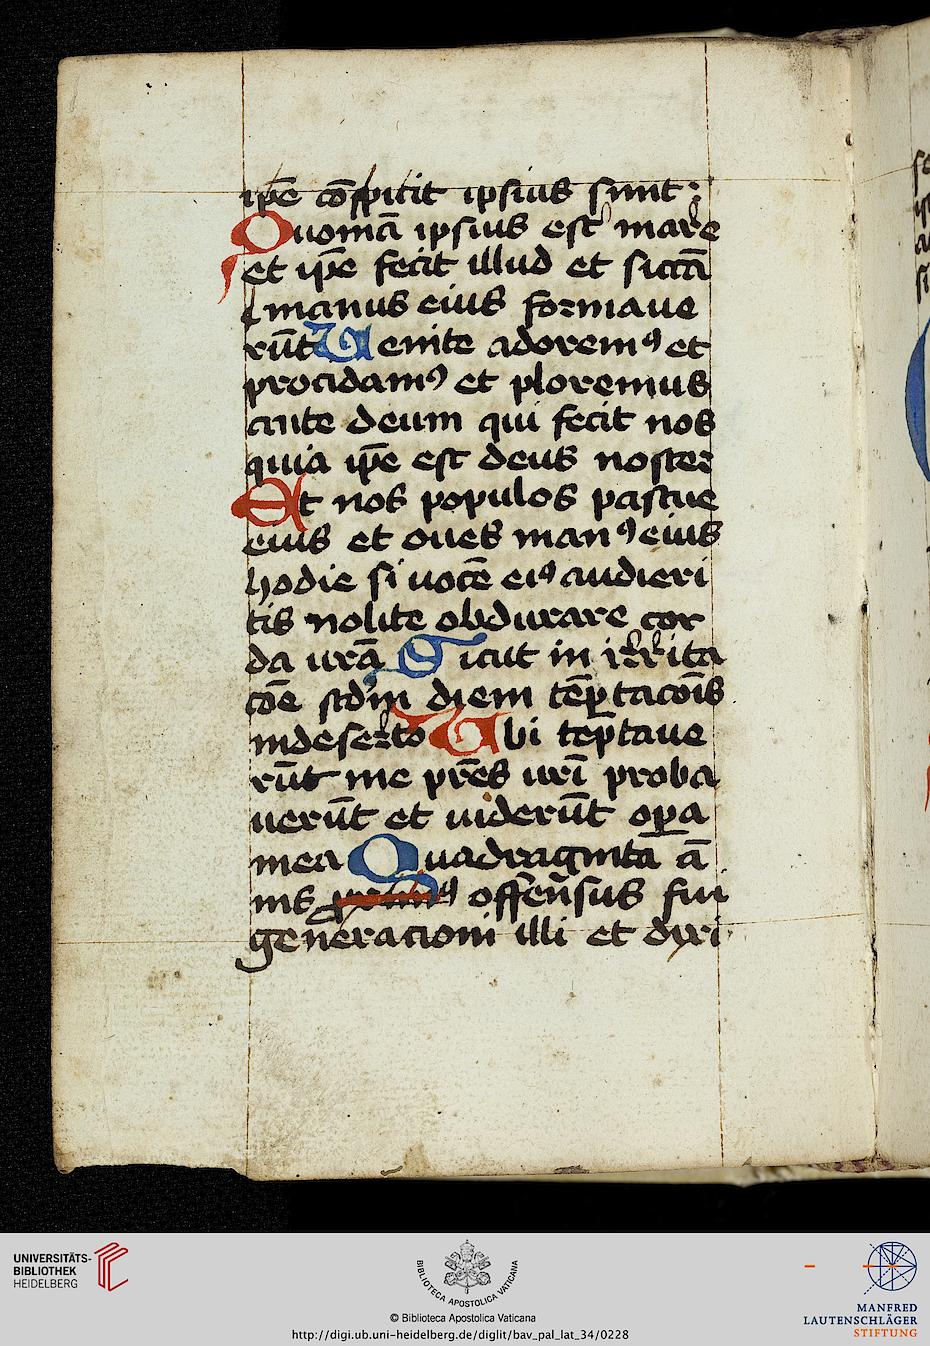 ip̄e cōspicit ipsius sunt:
Quoniā ipsius est mare
et ip̄e fecit illud et siccā
manus eius formaue
rūt Uenite adoremꝰ et
procidamꝰ et ploremus
ante deum qui fecit nos
quia ip̄e est deus noster
Et nos populos pascue
eius et oues manꝰ eius
hodie si uocē eiꝰ audieri
tis nolite obdurare cor
da ur̄a Sicut in irrita
cōe scdm diem tēptacōis
in deserto Ubi tēptaue
rūt me pr̄es ur̄i proba
uerūt et uiderūt oꝑa
mea Quadraginta ā
nis offensus fui
generacioni illi et dixi
UNIVERSITÄTS-
BIBLIOTHEK
HEIDELBERG
BIBLIOTECA APOSTOLICA VATICANA
© Biblioteca Apostolica Vaticana
http://digi.ub.uni-heidelberg.de/diglit/bav_pal_lat_34/0228
MANFRED
LAUTENSCHLÄGER
STIFTUNG